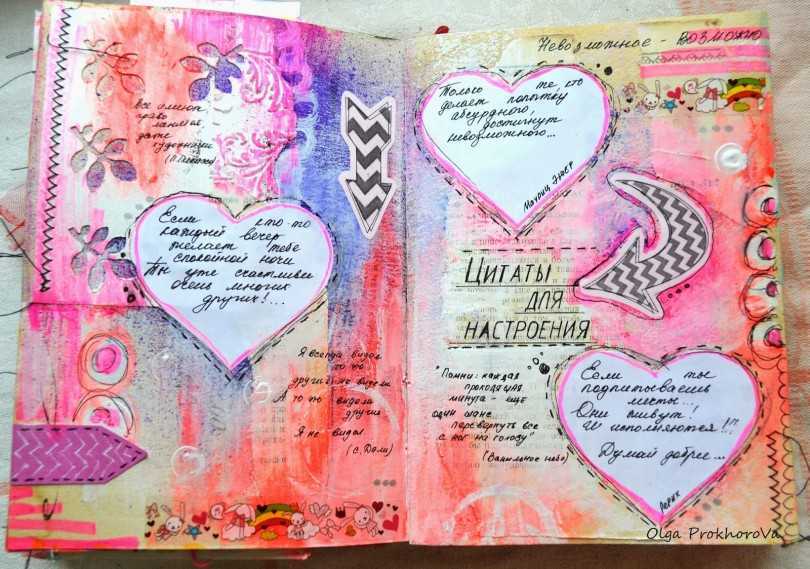 Все имеют
право
даже
художники
Если кто-то
каждый вечер
желает тебе
спокойной ночи
Ты уже счастливее
очень многих
других!...
Я всегда видел
то что
другие не видели
А то что видели
другие
Я не видел
(С. Дали)
Невозможное - возможно
Только те кто
делает попытку
абсурдного,
достигнут
невозможного...
Мориц Эшер
ЦИТАТЫ
ДЛЯ
НАСТРОЕНИЯ
"Помни: каждая
проходящая
минута - ещё
один шанс
перевернуть все
с ног на голову"
(Ванильное небо)
Если ты
подпитываешь
мечты...
Они живут!
И исполняются!!!
Думай добрее...
Рерих
Olga ProkhoroVa